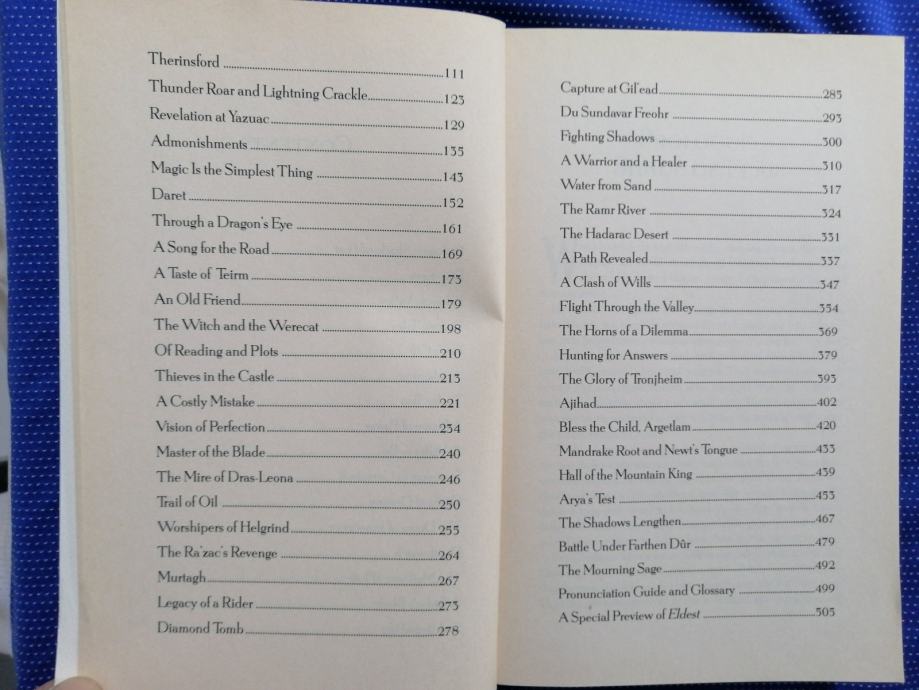 Therinsford ..... 111
Thunder Roar and Lightning Crackle ..... 123
Revelation at Yazuac ..... 129
Admonishments ..... 135
Magic Is the Simplest Thing ..... 143
Daret ..... 152
Through a Dragon's Eye ..... 161
A Song for the Road ..... 169
A Taste of Teirm ..... 173
An Old Friend ..... 179
The Witch and the Werecat ..... 198
Of Reading and Plots ..... 210
Thieves in the Castle ..... 213
A Costly Mistake ..... 221
Vision of Perfection ..... 234
Master of the Blade ..... 240
The Mire of Dras-Leona ..... 246
Trail of Oil ..... 250
Worshipers of Helgrind ..... 255
The Ra'zac's Revenge ..... 264
Murtagh ..... 267
Legacy of a Rider ..... 273
Diamond Tomb ..... 278
Capture at Gil'ead ..... 285
Du Sundavar Freohr ..... 293
Fighting Shadows ..... 300
A Warrior and a Healer ..... 310
Water from Sand ..... 317
The Ramr River ..... 324
The Hadarac Desert ..... 331
A Path Revealed ..... 337
A Clash of Wills ..... 347
Flight Through the Valley ..... 354
The Horns of a Dilemma ..... 369
Hunting for Answers ..... 379
The Glory of Tronjheim ..... 393
Ajihad ..... 402
Bless the Child, Argetlam ..... 420
Mandrake Root and Newt's Tongue ..... 433
Hall of the Mountain King ..... 439
Arya's Test ..... 453
The Shadows Lengthen ..... 467
Battle Under Farthen Dûr ..... 479
The Mourning Sage ..... 492
Pronunciation Guide and Glossary ..... 499
A Special Preview of Eldest ..... 505